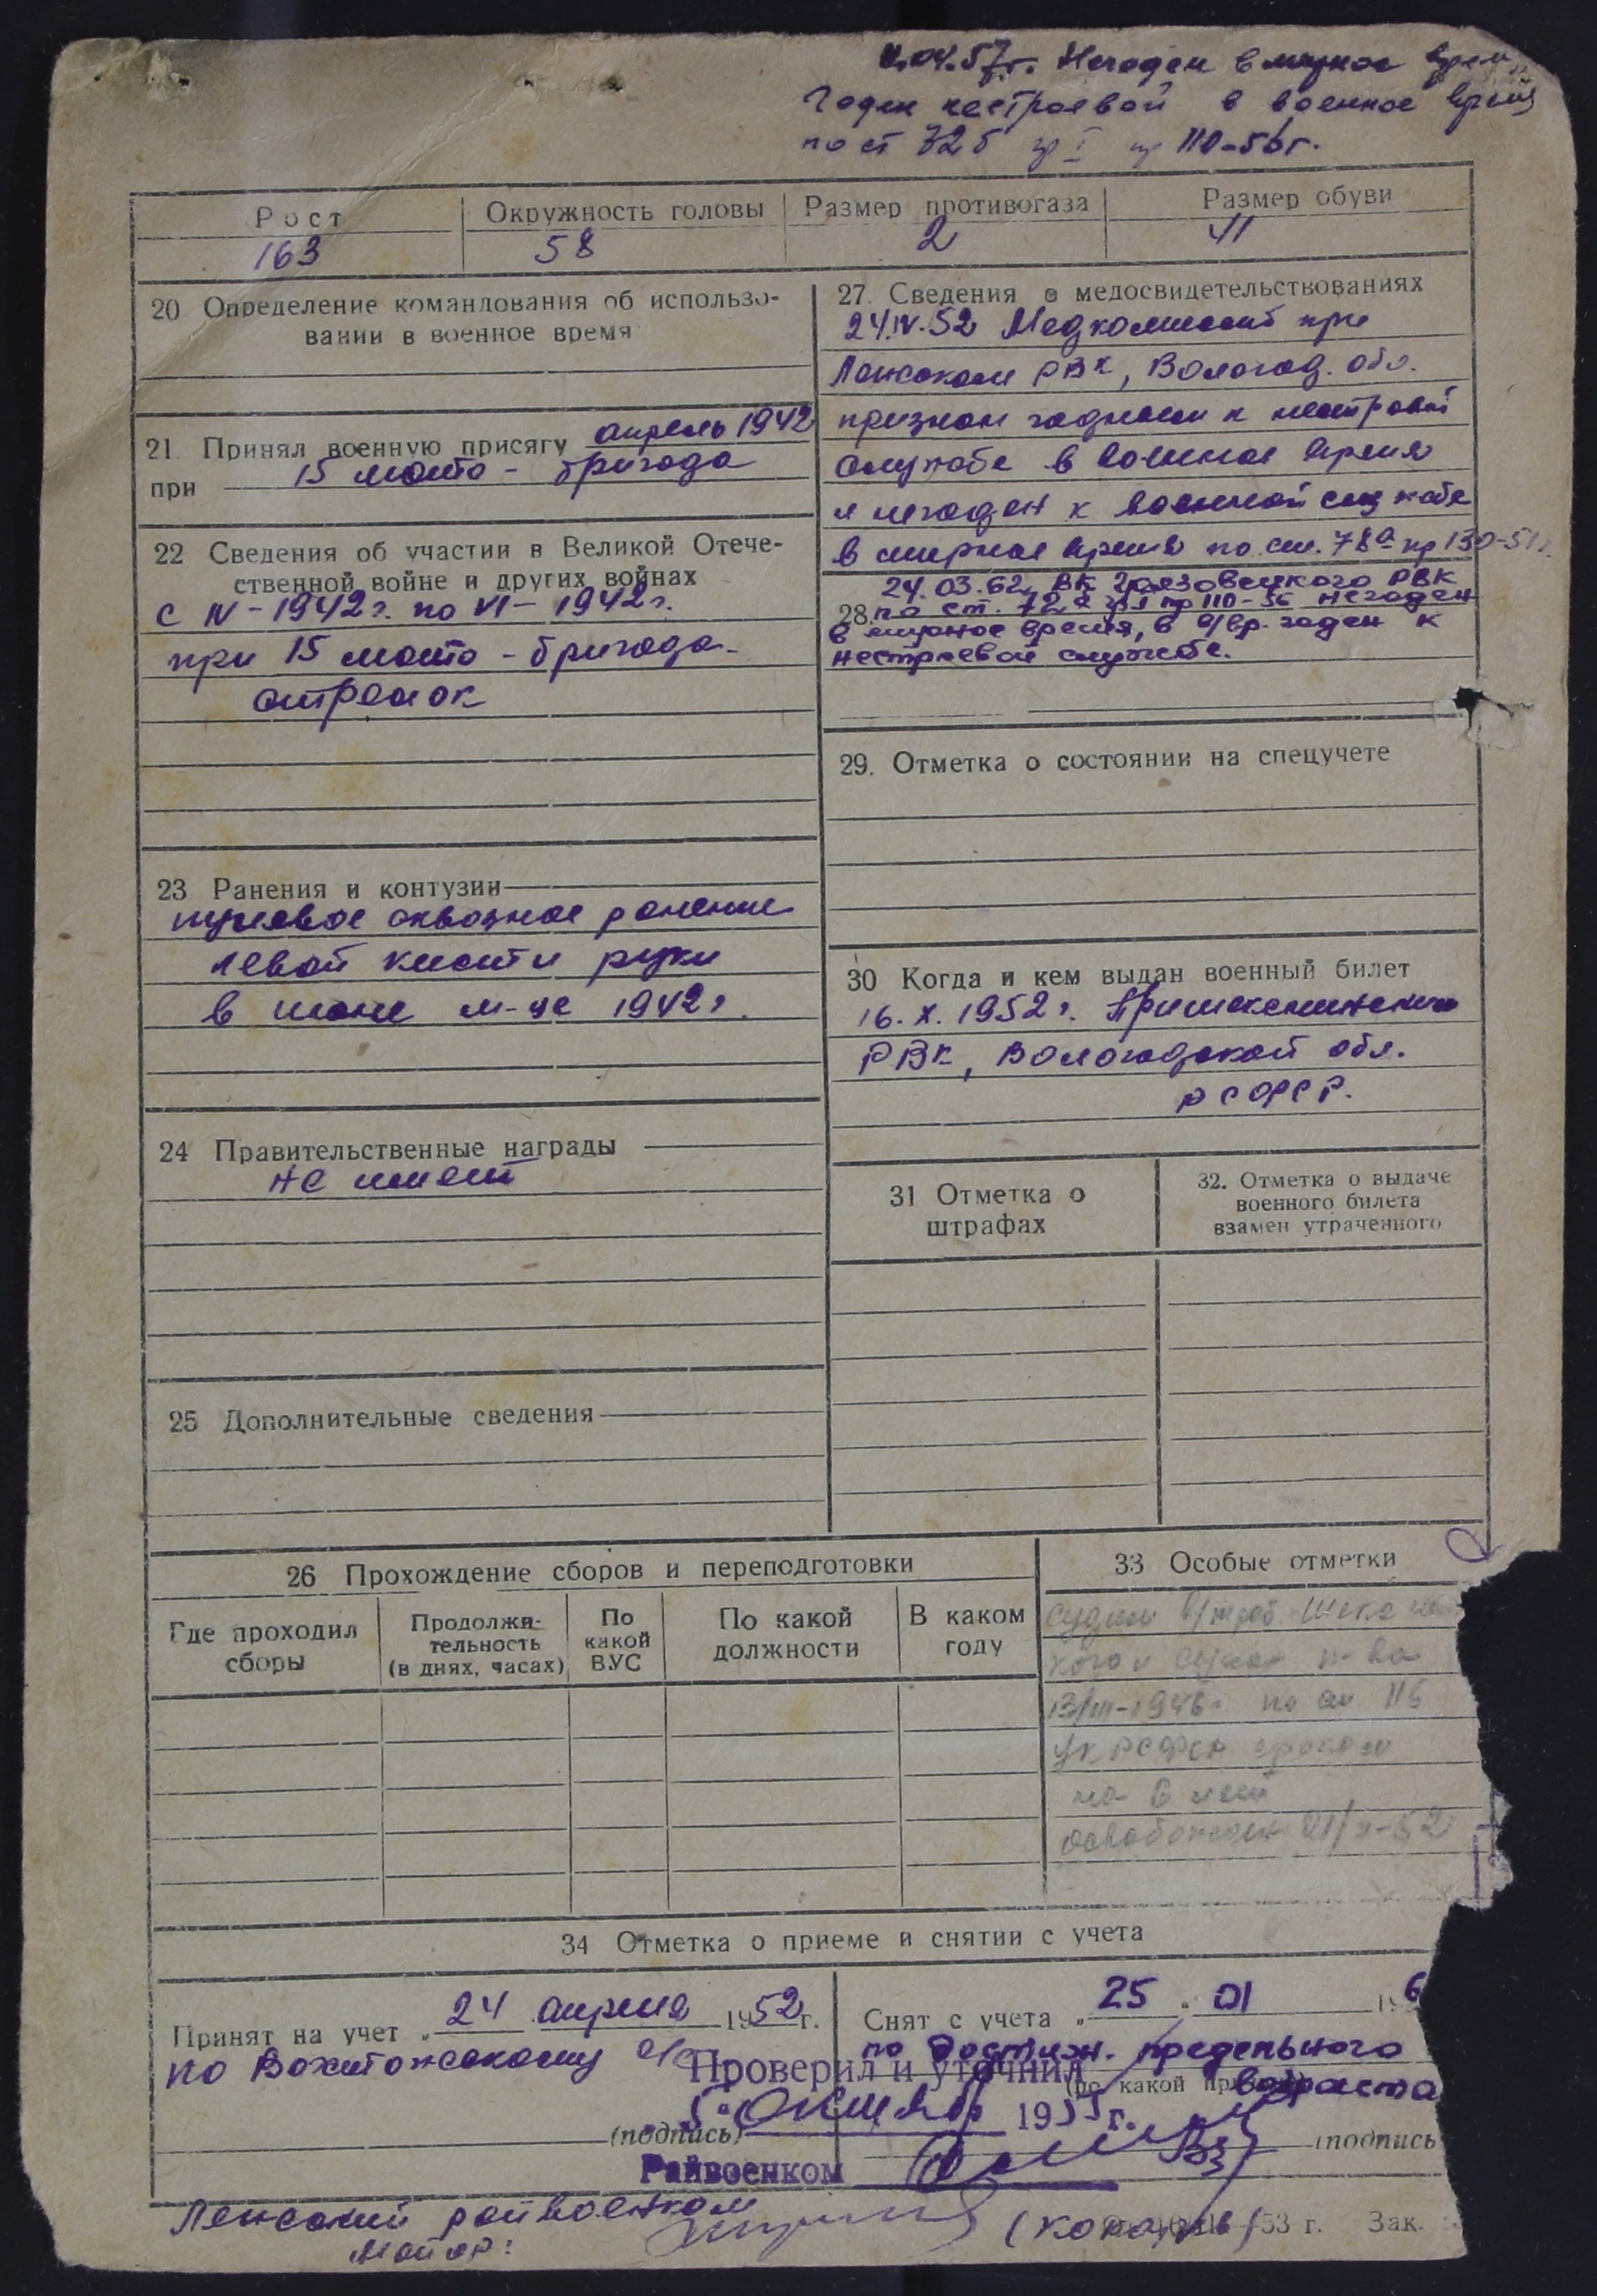 .04.57г. Негоден в мирное врем
Годен нестроевой в военное время
по ст 72б гр I пр 110-56г.
Рост
Окружность головы
Размер противогаза
Размер обуви
163
58
2
41
20 Определение командования об использо-
вании в военное время
21. Принял военную присягу апрель 1942
при 15 мото-бригада
22 Сведения об участии в Великой Отече-
ственной войне и других войнах
с IV-1942г. по VI-1942г.
при 15 мото-бригада-
стрелок
23 Ранения и контузии
пулевое сквозное ранение
левой кисти руки
в июне м-це 1942г.
24 Правительственные награды
не имеет
25 Дополнительные сведения
27. Сведения о медосвидетельствованиях
24.IV.52 Медкомиссией при
РВК, Вологод. обл.
признан годным к нестроевой
службе в военное время
и негоден к военной службе
в мирное время по ст. 78а пр 130-51г.
24.03.62г. ВК Грязовецкого РВК
28. по ст. 72а гр I пр 110-56 негоден
в мирное время, в в/вр. годен к
нестроевой службе.
29. Отметка о состоянии на спецучете
30 Когда и кем выдан военный билет
16.X.1952г. Пришекснинским
РВК, Вологодской обл.
РСФСР.
31 Отметка о
штрафах
32. Отметка о выдаче
военного билета
взамен утраченного
26 Прохождение сборов и переподготовки
Где проходил
сборы
Продолжи-
тельность
(в днях, часах)
По
какой
ВУС
По какой
должности
В каком
году
33 Особые отметки
судим
13/III-1946г по ст 116
УК РСФСР сроком
на 6 лет
освобожден 21/ -52
34 Отметка о приеме и снятии с учета
Принят на учет „24 апреля 1952г.
по Вохтожскому с/с
(подпись)
Снят с учета „25 „ 01 196
по достиж. предельного
возраста
(по какой
(подпись
Проверил и уточнил
5 Октября 1955г.
Райвоенком
райвоенком
Майор:
53 г. Зак.